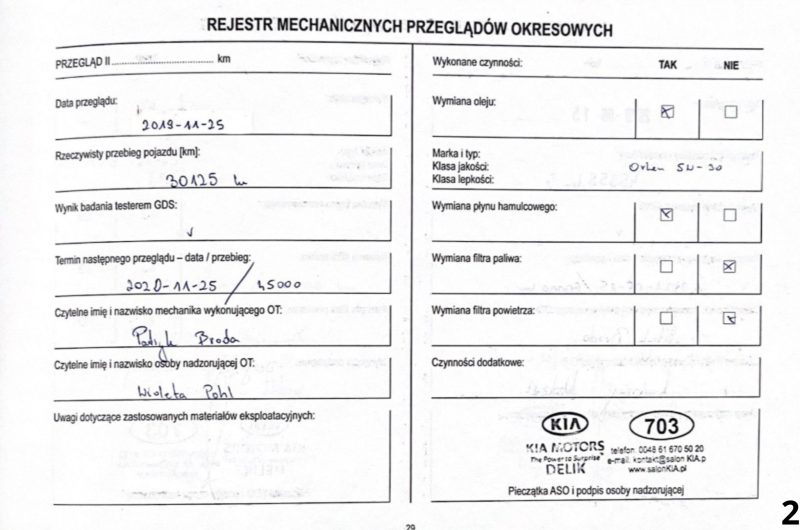 REJESTR MECHANICZNYCH PRZEGLĄDÓW OKRESOWYCH
PRZEGLĄD II ........................................ km
Data przeglądu:
2019-11-25
Rzeczywisty przebieg pojazdu [km]:
30125 km
Wynik badania testerem GDS:
Termin następnego przeglądu – data / przebieg:
2020-11-25 / 45000
Czytelne imię i nazwisko mechanika wykonującego OT:
Broda
Czytelne imię i nazwisko osoby nadzorującej OT:
Wioleta Pohl
Uwagi dotyczące zastosowanych materiałów eksploatacyjnych:
Wykonane czynności: TAK NIE
Wymiana oleju:
Marka i typ:
Klasa jakości:
Klasa lepkości:
Wymiana płynu hamulcowego:
Wymiana filtra paliwa:
Wymiana filtra powietrza:
Czynności dodatkowe:
KIA 703
KIA MOTORS
The Power to Surprise
DELIK
telefon: 0048 61 670 50 20
e-mail: kontakt@salon KIA.p
www.salonKIA.pl
Pieczątka ASO i podpis osoby nadzorującej
29
2